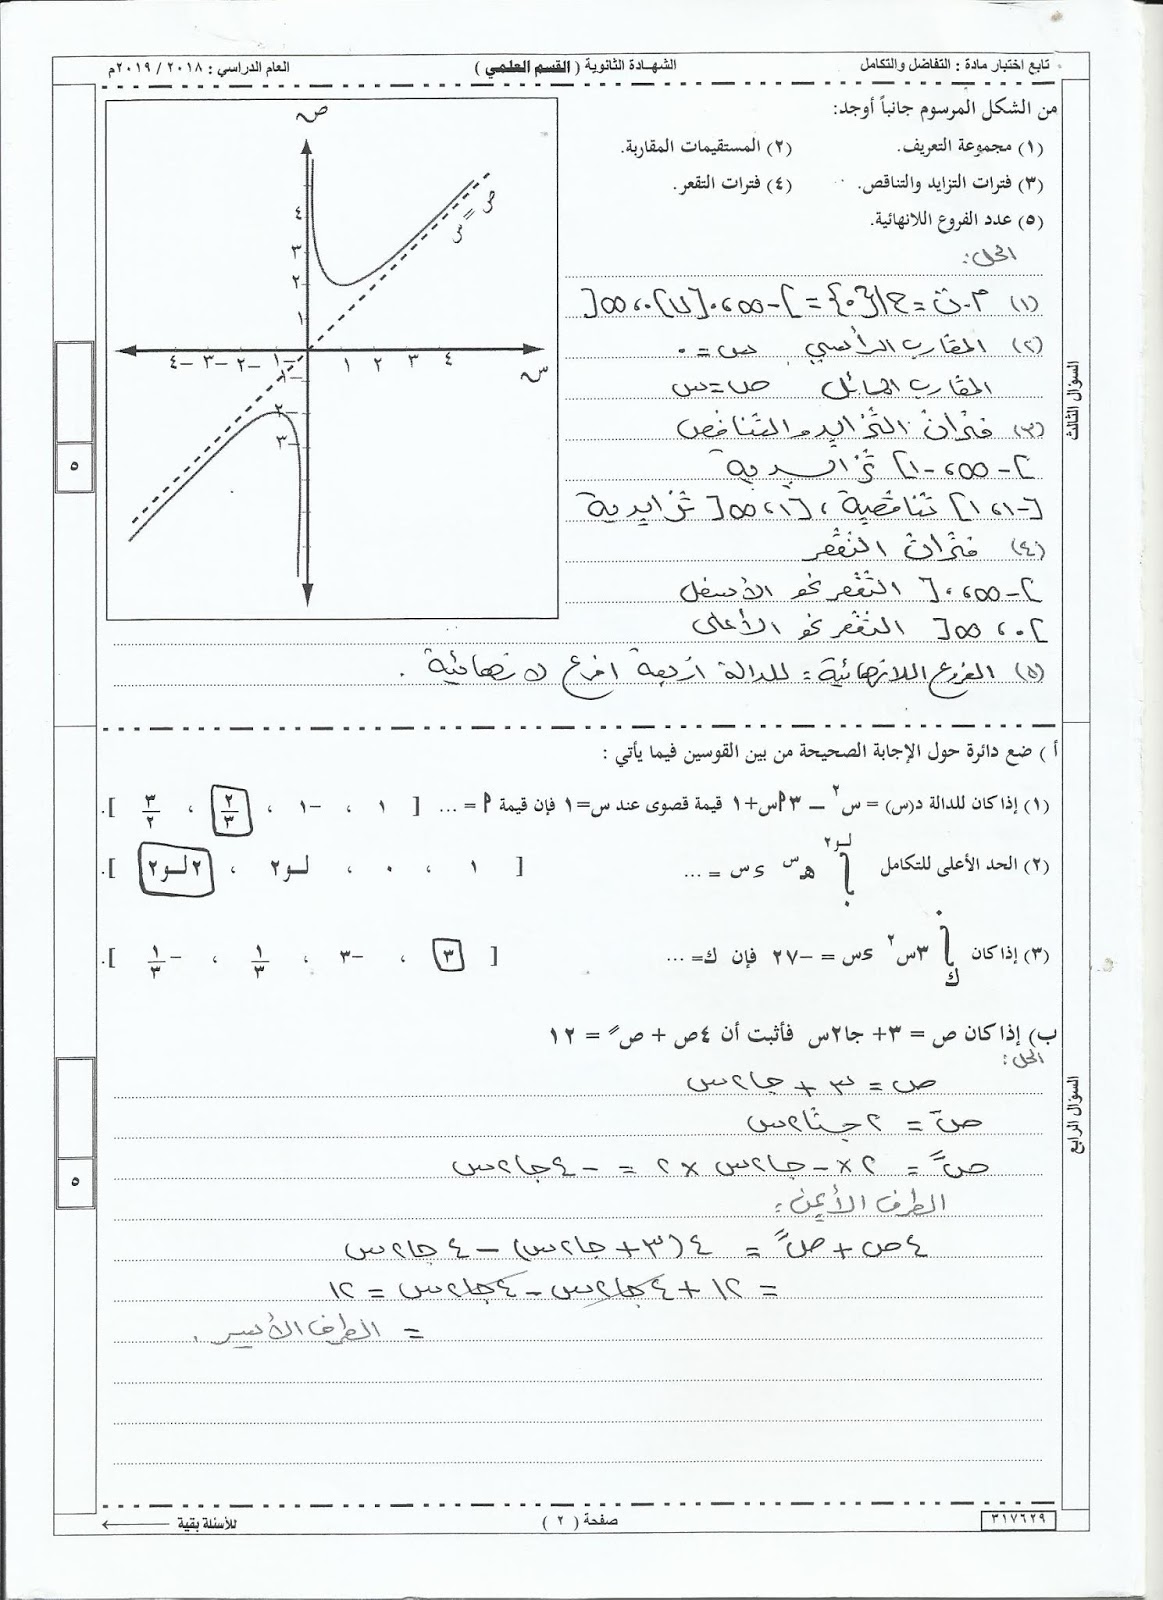 تابع اختبار مادة : التفاضل والتكامل الشهادة الثانوية ( القسم العلمي ) العام الدراسي : ٢٠١٨ / ٢٠١٩م
السؤال الثالث
من الشكل المرسوم جانباً أوجد:
(١) مجموعة التعريف. (٢) المستقيمات المقاربة.
(٣) فترات التزايد والتناقص. (٤) فترات التقعر.
(٥) عدد الفروع اللانهائية.
الحل:
(١) م.ت = ح\{٠} = ]-∞،٠[ U ]٠،∞[
(٢) المقارب الرأسي س = ٠
المقارب المائل ص = س
(٣) فترات التزايد والتناقص
]-∞،-١] تزايدية
[-١،١] تناقصية ، [١،∞[ تزايدية
(٤) فترات التقعر
]-∞،٠[ التقعر نحو الأسفل
]٠،∞[ التقعر نحو الأعلى
(٥) الفروع اللانهائية : للدالة أربعة أفرع لانهائية .
ص
٤
٣
٢
١
-٤ -٣ -٢ -١ ١ ٢ ٣ ٤
س
-١
-٢
-٣
ص = س
٥
السؤال الرابع
أ ) ضع دائرة حول الإجابة الصحيحة من بين القوسين فيما يأتي :
(١) إذا كان للدالة د(س) = س٢ – ٣أس+١ قيمة قصوى عند س=١ فإن قيمة أ = ... [ ١ ، -١ ، ٢/٣ ، ٣/٢ ].
(٢) الحد الأعلى للتكامل ∫٠^لو٢ هـ^س ءس = ... [ ١ ، ٠ ، لو٢ ، ٢لو٢ ].
(٣) إذا كان ∫ك^٠ ٣س٢ ءس = -٢٧ فإن ك= ... [ ٣ ، -٣ ، ١/٣ ، -١/٣ ].
ب) إذا كان ص = ٣+ جا٢س فأثبت أن ٤ص + صً = ١٢
الحل:
ص = ٣ + جا٢س
صَ = ٢جتا٢س
صً = ٢×-جا٢س×٢ = -٤جا٢س
الطرف الأيمن :
٤ص + صً = ٤(٣+جا٢س) - ٤جا٢س
= ١٢ + ٤جا٢س - ٤جا٢س = ١٢
= الطرف الأيسر .
٥
٣١٧٦٢٩ صفحة ( ٢ ) للأسئلة بقية